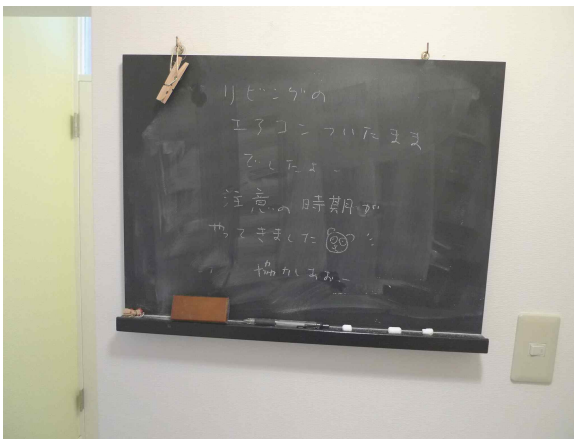 リビングの
エアコンついたまま
でしたよー
注意の時期が
やってきました
協力しあおー